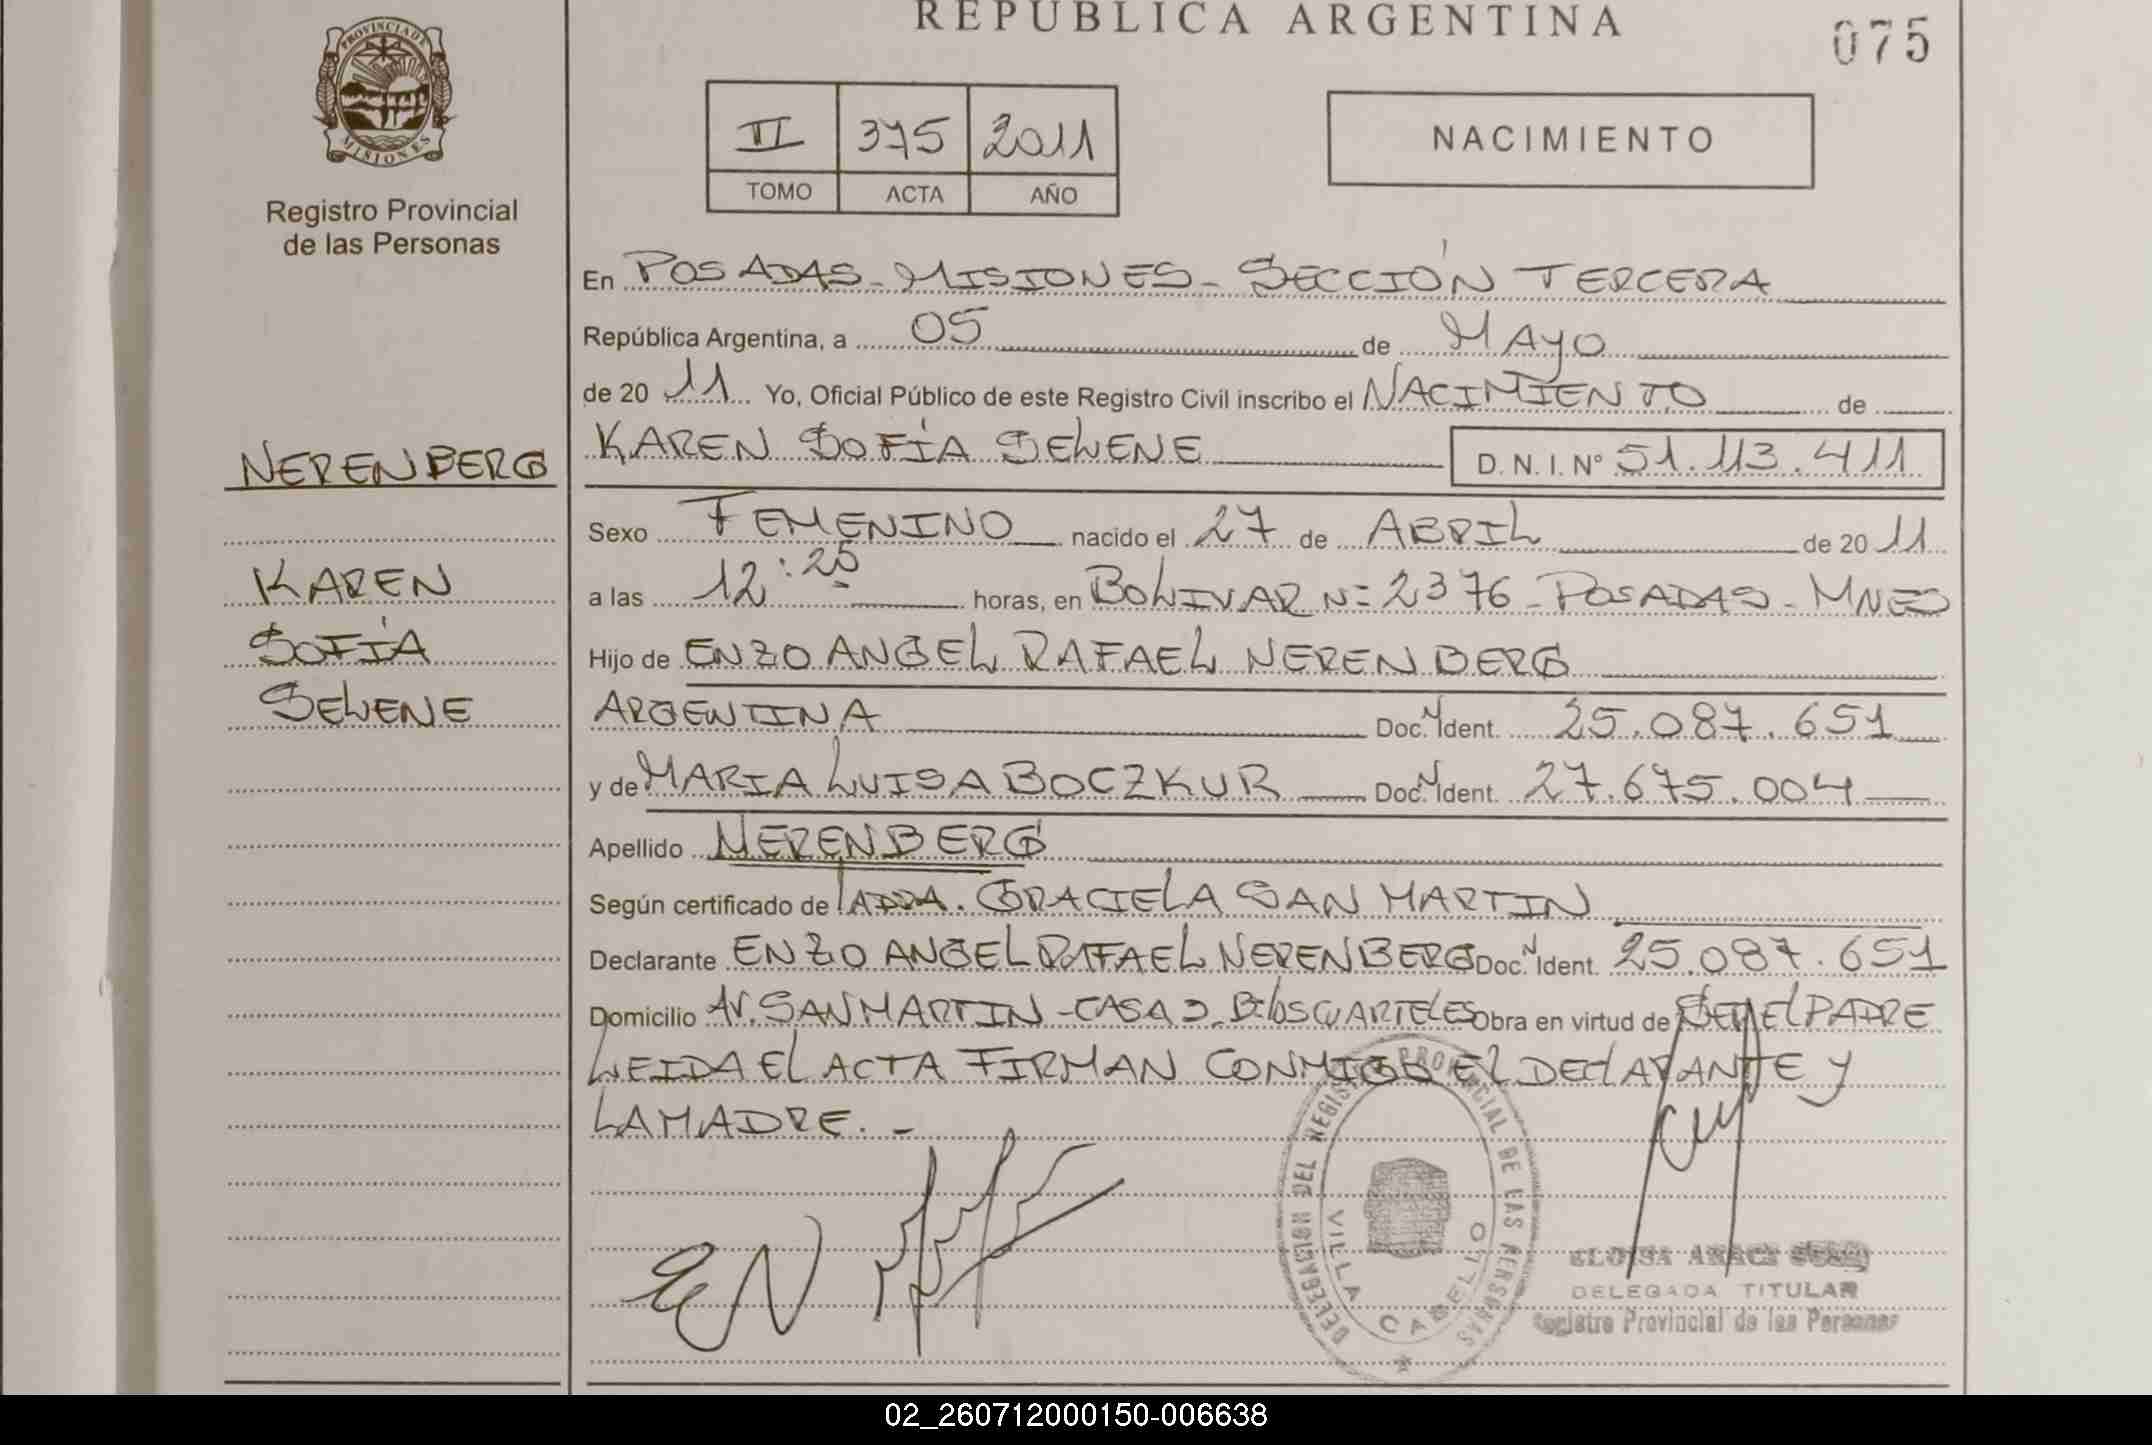 REPUBLICA ARGENTINA
075
PROVINCIA DE
MISIONES
Registro Provincial
de las Personas
II 375 2011
TOMO ACTA AÑO
NACIMIENTO
En POSADAS - MISIONES - SECCIÓN TERCERA
República Argentina, a 05 de MAYO
de 20 11 Yo, Oficial Público de este Registro Civil inscribo el NACIMIENTO de
KAREN SOFÍA SELENE D. N. I. Nº 51.113.411
NERENBERG
KAREN
SOFÍA
SELENE
Sexo FEMENINO nacido el 27 de ABRIL de 20 11
a las 12:25 horas, en BOLIVAR Nº 2376 - POSADAS - MNES
Hijo de ENZO ANGEL RAFAEL NERENBERG
ARGENTINA Doc. N Ident. 25.087.651
y de MARIA LUISA BOCZKUR Doc. N Ident. 27.675.004
Apellido NERENBERG
Según certificado de LA DRA. GRACIELA SAN MARTIN
Declarante ENZO ANGEL RAFAEL NERENBERG Doc. N Ident. 25.087.651
Domicilio AV. SAN MARTIN - CASA Bº LOS CUARTELES Obra en virtud de SER EL PADRE
LEIDA EL ACTA FIRMAN CONMIGO EL DECLARANTE Y
LA MADRE. -
EN
DELEGACION DEL REGISTRO PROVINCIAL DE LAS PERSONAS
VILLA CABELLO
ELOISA
DELEGADA TITULAR
Registro Provincial de las Personas
02_260712000150-006638